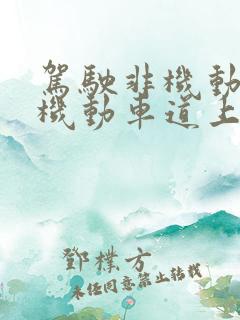 駕駛非機動
機動車道上
鄧樸方
未经同意禁止转载